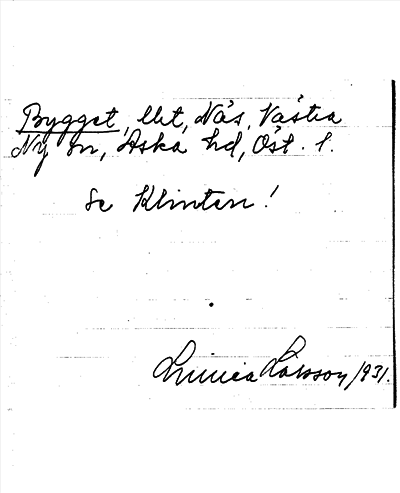 Bygget, lht, Näs, Västra
Ny sn, Aska hd, Öst. l.
Se Klinten!
Linnea Larsson 1931.